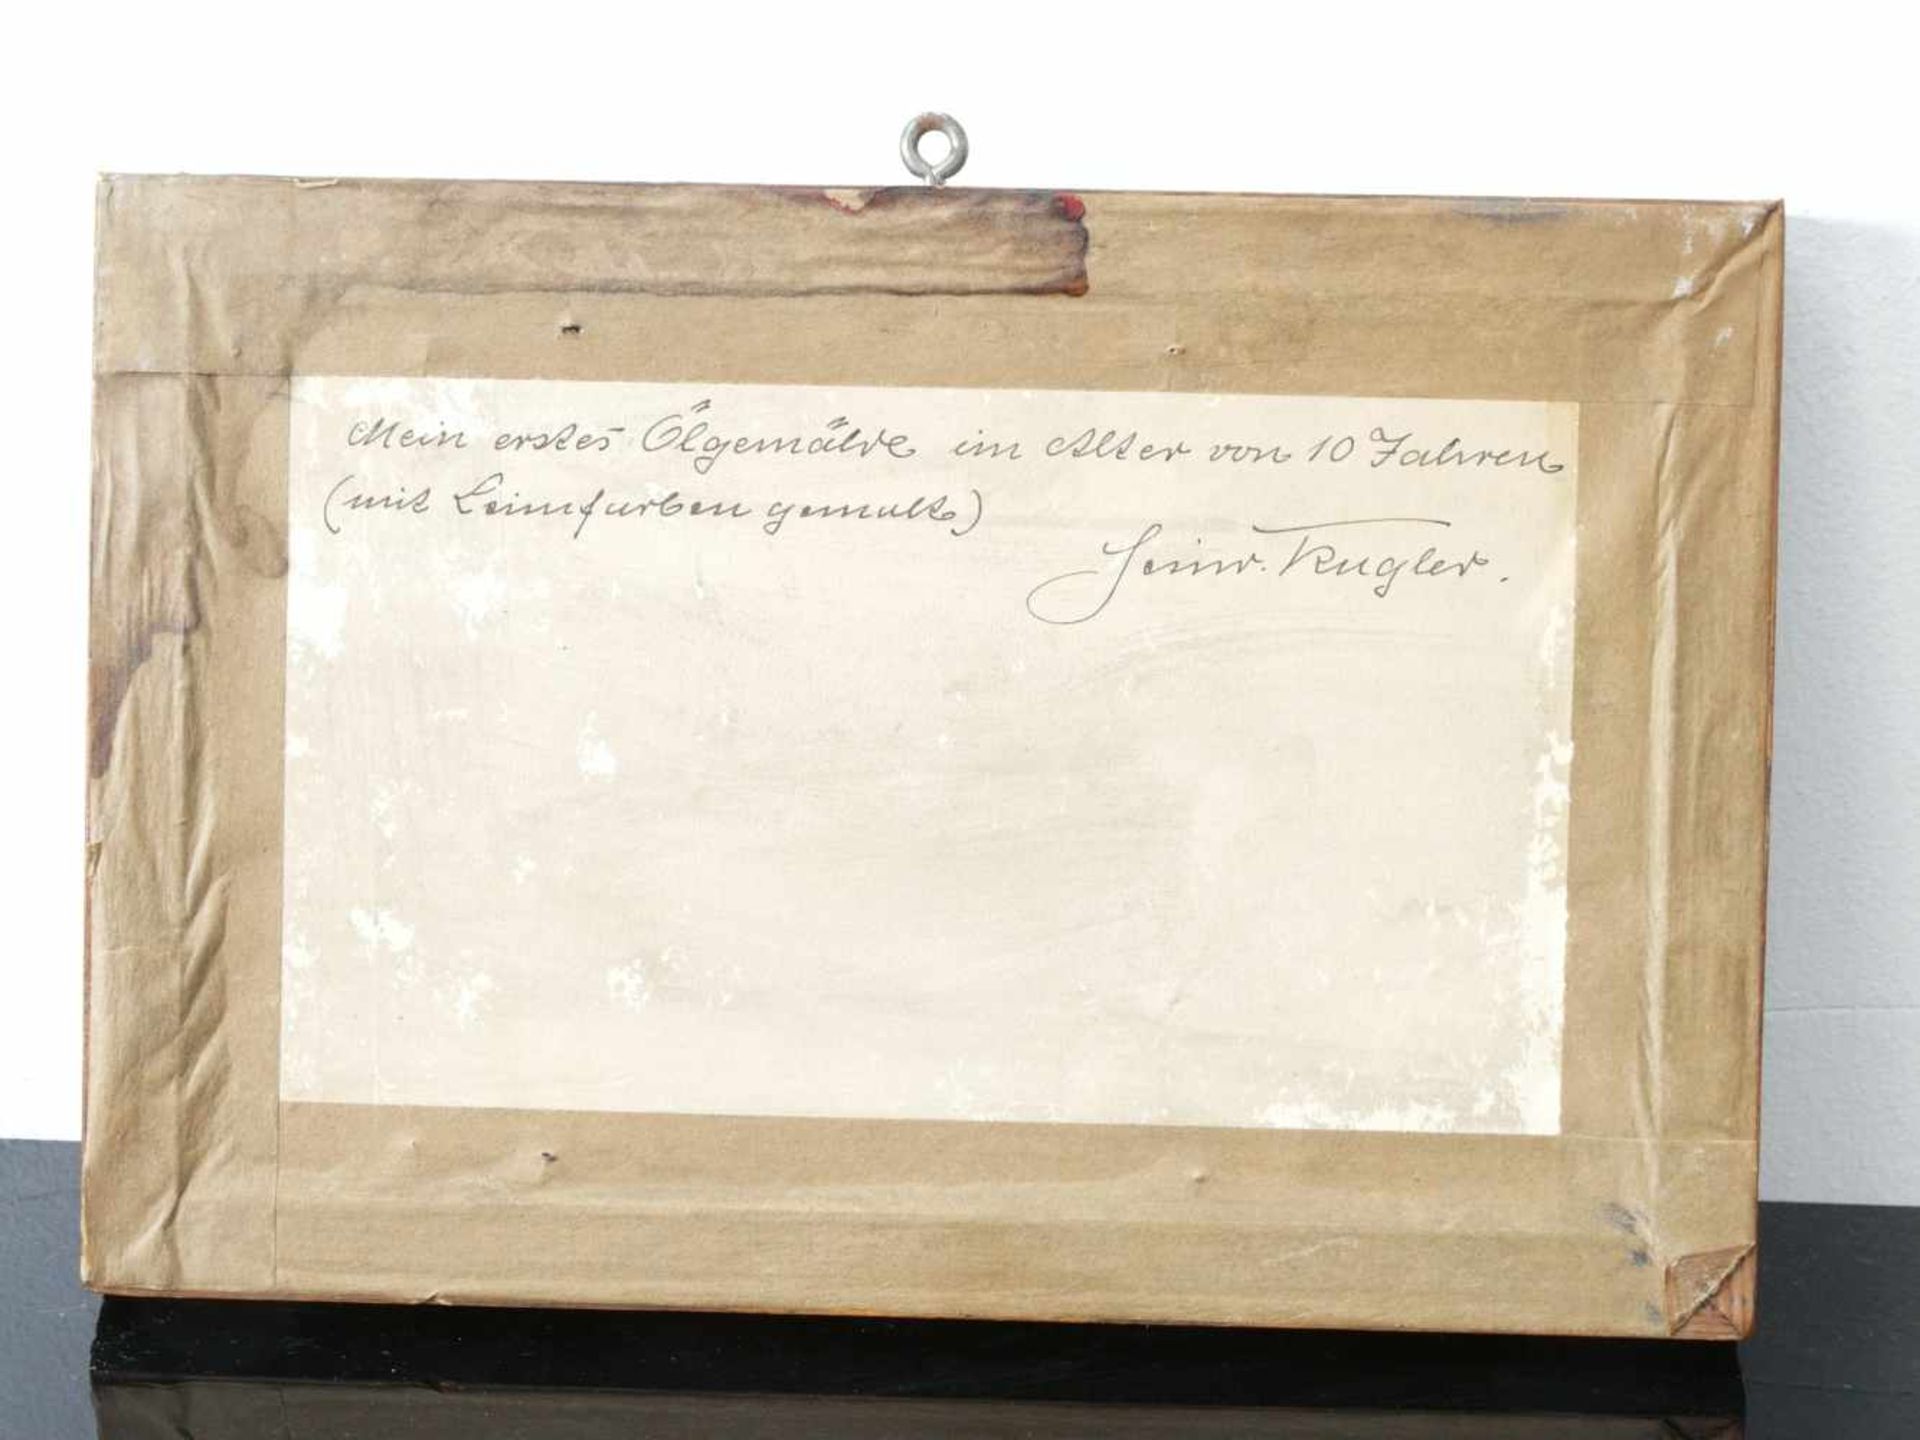 Mein erstes Ölgemälde im Alter von 10 Jahren
(mit Leimfarben gemalt)
Heinr. Kugler.